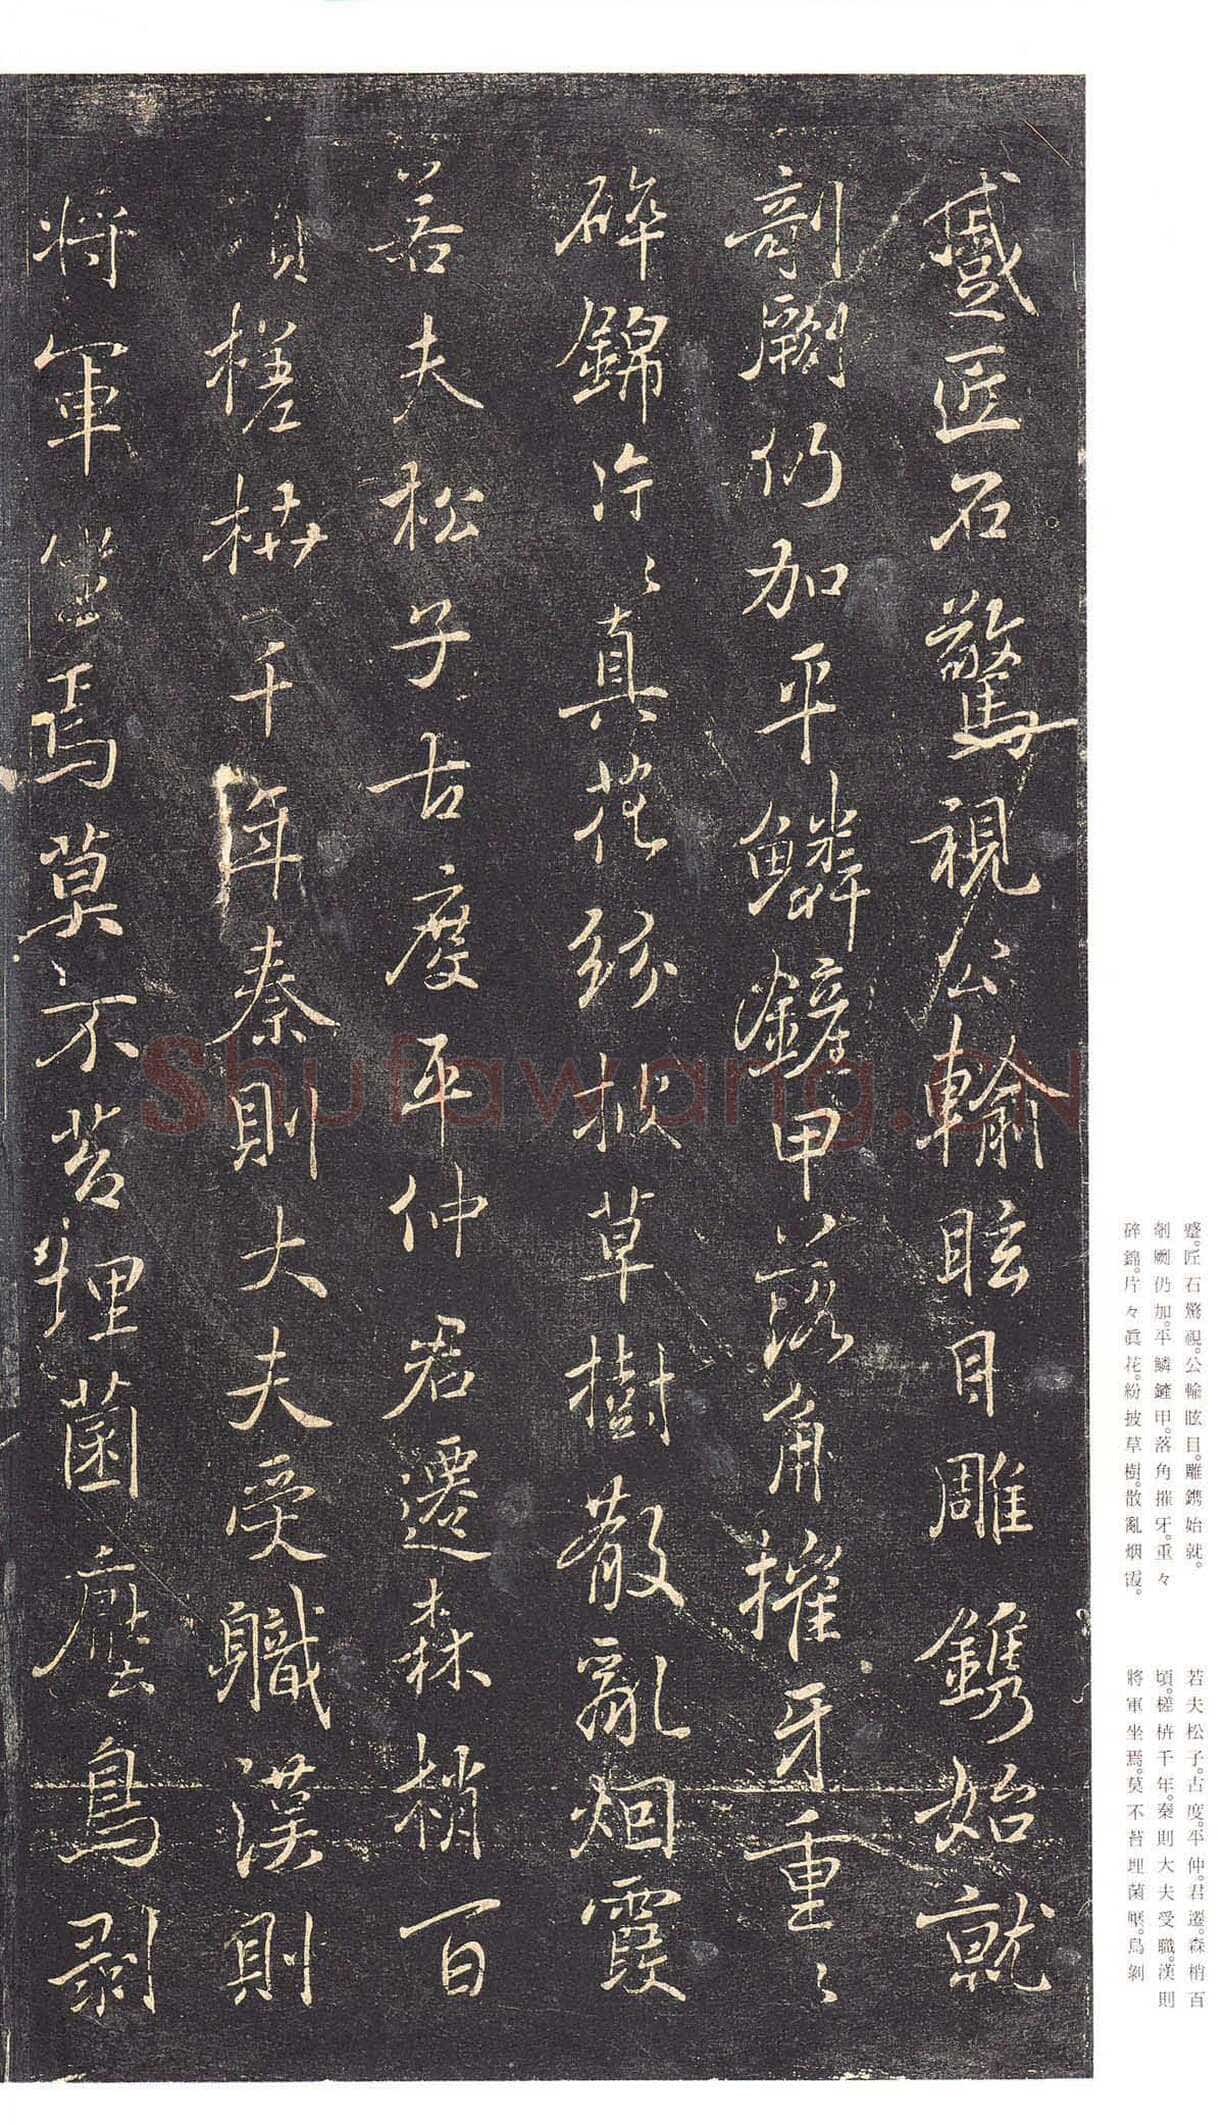 蹙匠石驚視公輸眩目雕鐫始就
剞劂仍加平鱗鏟甲落角摧牙重〻
碎錦片〻真花紛披草樹散亂烟霞
若夫松子古度平仲君遷森梢百
頃槎枿千年秦則大夫受職漢則
將軍坐焉莫不苔埋菌壓鳥剥
蹙。匠石驚視。公輸眩目。雕鐫始就。
剞劂仍加。平鱗鏟甲。落角摧牙。重々
碎錦。片々眞花。紛披草樹。散亂烟霞。
若夫松子。古度。平仲。君遷。森梢百
頃。槎枿千年。秦則大夫受職。漢則
將軍坐焉。莫不苔埋菌壓。鳥剝
Shufawang.CN